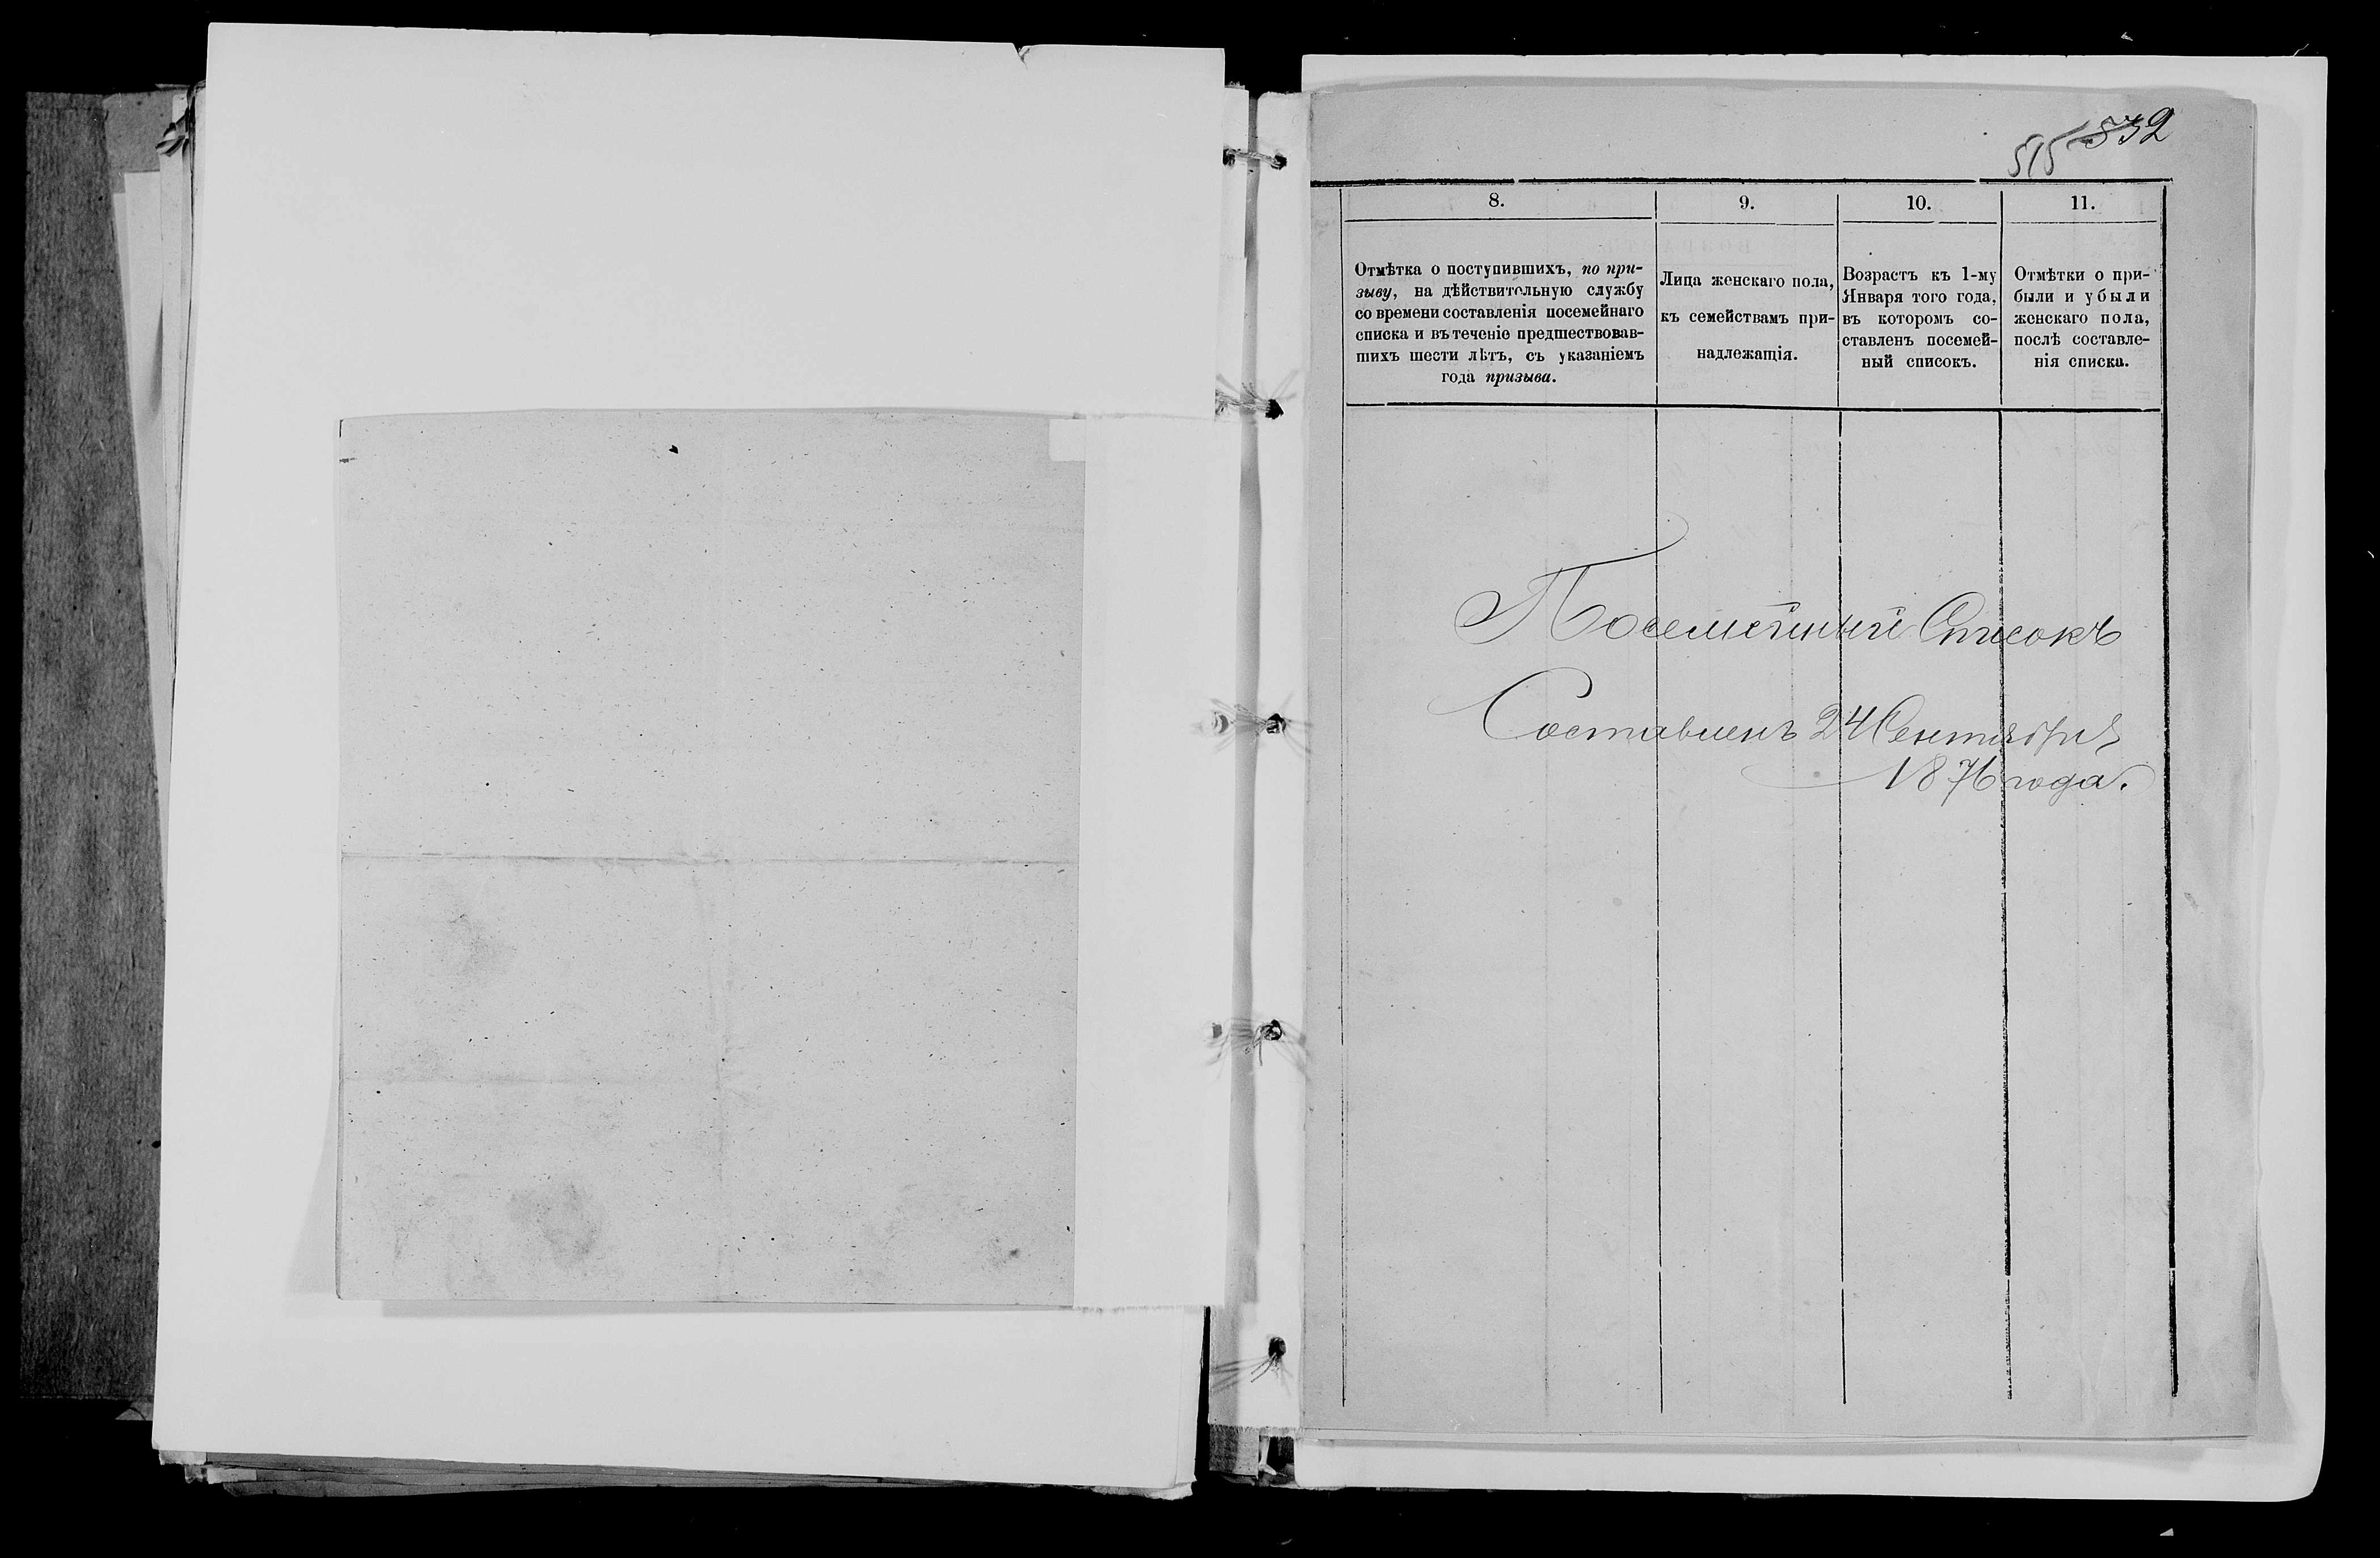 532
515
8.
9.
10.
11.
Отмѣтка о поступившихъ, по при-
зыву, на дѣйствительную службу
со времени составленія посемейнаго
списка и въ теченіе предшествовав-
шихъ шести лѣтъ, съ указаніемъ
года призыва.
Лица женскаго пола,
къ семействамъ при-
надлежащія.
Возрастъ къ 1-му
Января того года,
въ которомъ со-
ставленъ посемей-
ный списокъ.
Отмѣтки о при-
были и убыли
женскаго пола,
послѣ составле-
нія списка.
Посемейный Списокъ
Составленъ 24 Сентября
1876 года.